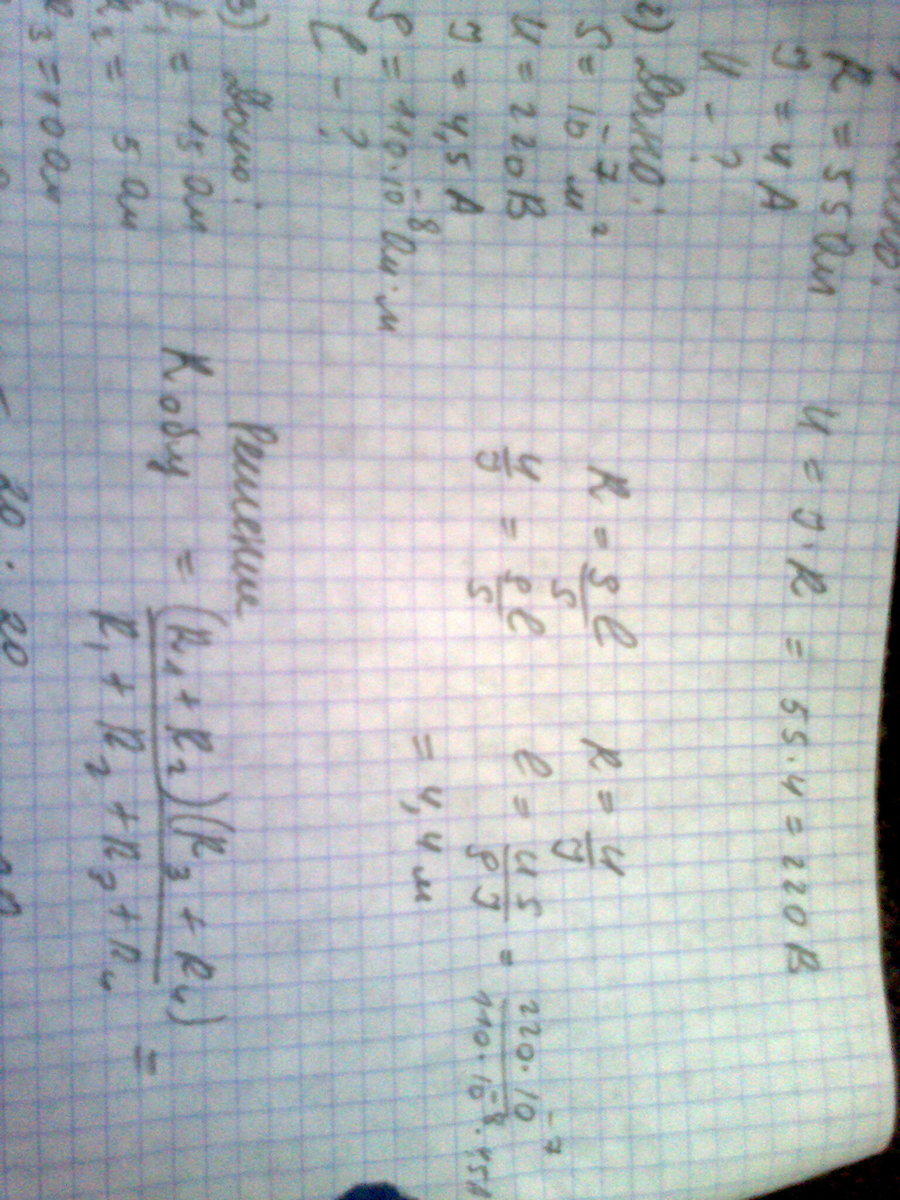 R = 55 Ом
J = 4 А
U - ?
U = J · R = 55 · 4 = 220 В
2) Дано:
S = 10⁻⁷ м²
U = 220 В
J = 4,5 А
ρ = 110 · 10⁻⁸ Ом · м
l - ?
R = ρl/S R = U/J
U/J = ρl/S l = US/ρJ = 220 · 10⁻⁷/110 · 10⁻⁸ · 4,5
= 4,4 м
3) Дано: Решение
R₁ = 15 Ом
R₂ = 5 Ом
R₃ = 10 Ом
Rобщ = (R₁ + R₂)(R₃ + R₄)/R₁ + R₂ + R₃ + R₄ =
20 · 20